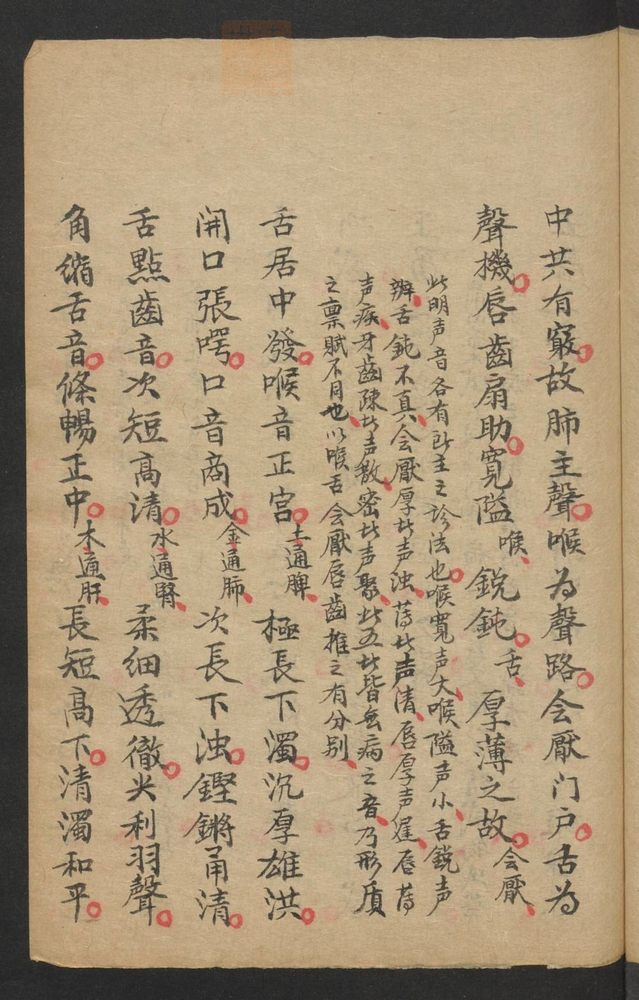 中共有竅故肺主聲喉為聲路会厭门户舌為
聲機唇齒扇助寬隘喉銳鈍舌厚薄之故会厭
此明声音各有所主之診法也喉寬声大喉隘声小舌銳声
辨舌鈍不真会厭厚者声浊薄者声清唇厚声遲唇薄
声疾牙齒疎者声散密者声聚此五者皆無病之音乃形质
之禀賦不同也以喉舌会厭唇齒推之有分別
舌居中發喉音正宮土通脾極長下濁沉厚雄洪
開口張㗁口音商成金通肺次長下浊鏗鏘甬清
舌點齒音次短高清水通腎柔細透徹尖利羽聲
角縮舌音條暢正中木通肝長短高下清濁和平